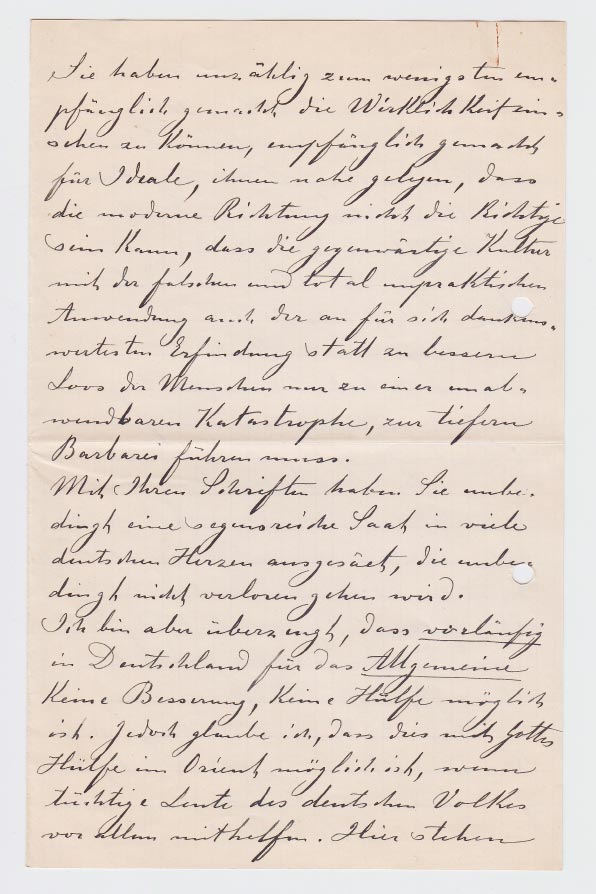 Sie haben unzählig zum wenigsten em-
pfänglich gemacht die Wirklichkeit ein-
sehen zu können, empfänglich gemacht
für Ideale, ihnen nahe gelegen, dass
die moderne Richtung nicht die Richtige
sein kann, dass die gegenwärtige Kultur
mit der falschen und total unpraktischen
Anwendung auch der an für sich dankens-
wertesten Erfindung statt zu bessern
Loos der Menschen nur zu einer unab-
wendbaren Katastrophe, zur tiefern
Barbarei führen muss.
Mit Ihren Schriften haben Sie unbe-
dingt eine segensreiche Saat in viele
deutschen Herzen ausgesäet, die unbe-
dingt nicht verloren gehen wird.
Ich bin aber überzeugt, dass vorläufig
in Deutschland für das Allgemeine
keine Besserung, keine Hülfe möglich
ist. Jedoch glaube ich, dass dies mit Gottes
Hülfe im Orient möglich ist, wenn
tüchtige Leute des deutschen Volkes
vor allem mithelfen. Hier stehen